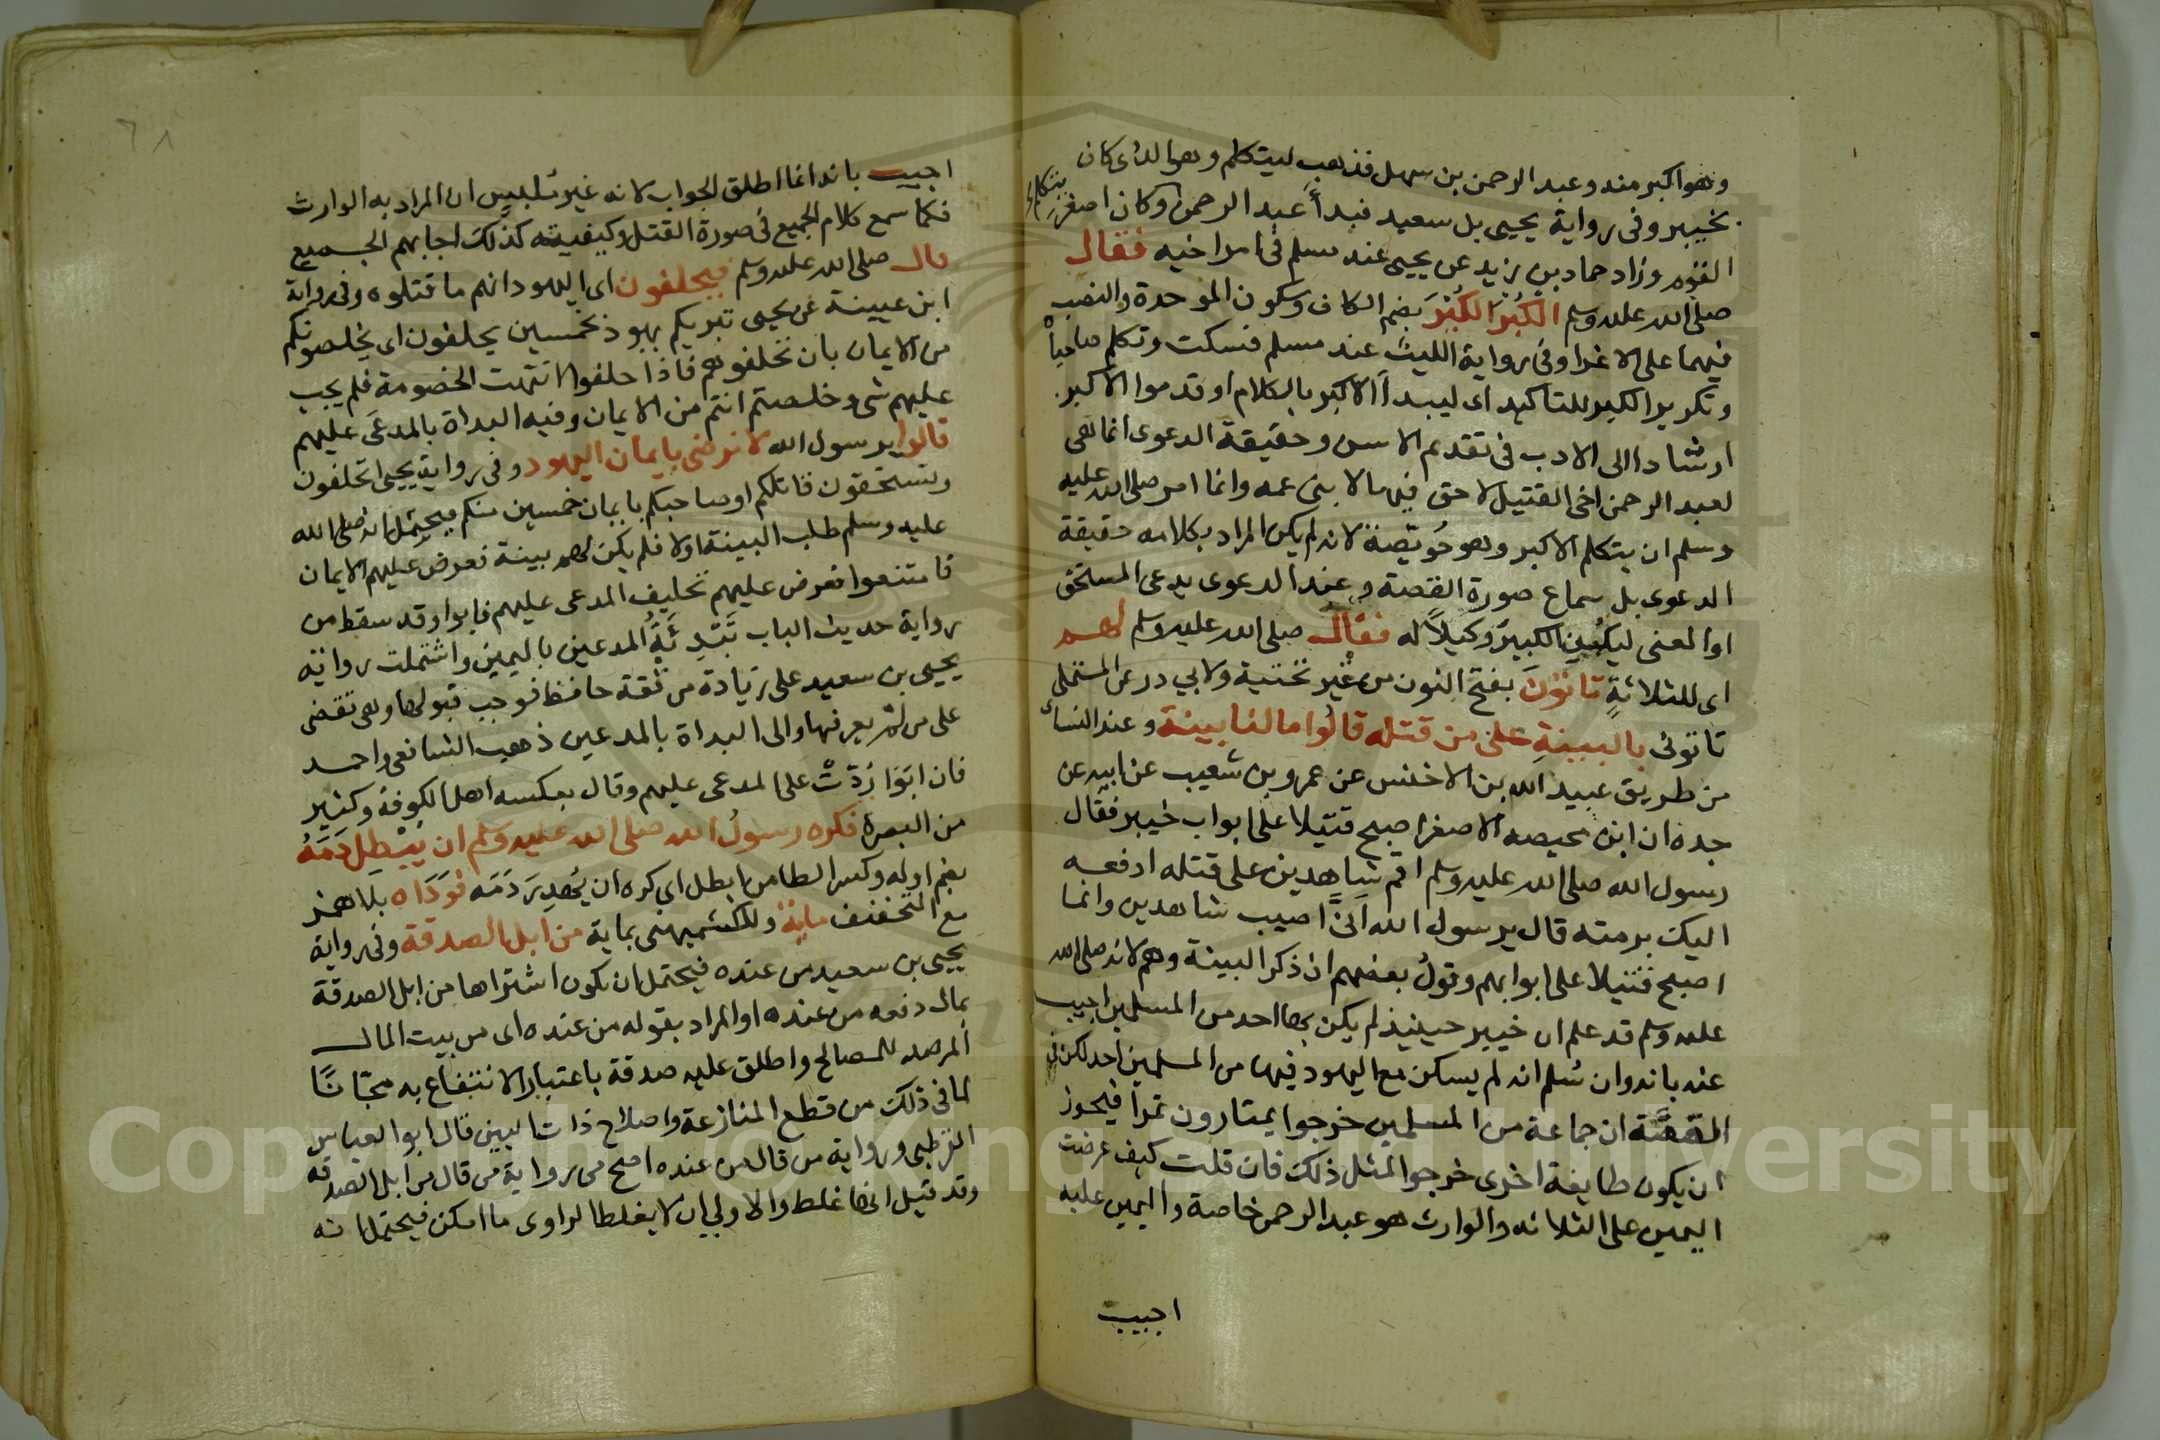 وهو اكبر منه وعبد الرحمن بن سهل فذهب ليتكلم وهو الذى كان
بخيبر وفى رواية يحيى بل سعيد فبدأ عبد الرحمن يتكلم وكان اصغر
القوم وزاد حماد بن زيد عن يحيى عند مسلم فى امر اخيه فقال
صلى الله عليه وسلم الكُبْرَ الكُبْرَ بضم الكاف وسكون الموحدة والنصب
فيهما على الاغرا وفى رواية الليث عند مسلم فسكت وتكلم صاحباه
وتكرير الكبر للتاكيد اى ليبدأ الاكبر بالكلام او قدموا الاكبر
ارشادا الى الادب فى تقديم الاسن وحقيقة الدعوى انما هى
لعبد الرحمن اخى القتيل لا حق فيها لابنى عمه وانما امر صلى الله عليه
وسلم ان يتكلم الاكبر وهو حُويّصة لانه لم يكن المراد بكلامه حقيقة
الدعوى بل سماع صورة القصة وعند الدعوى يدعى المستحق
او المعنى ليكن الكبيرُ وكيلاً له فقال صلى الله عليه وسلم لهم
اى للثلاثةٍ تاتونَ بفتح النون من غير تحتية ولابي ذر عن المستملى
تاتونى بالبينةِ على من قتله قالُوا ما لنا بينة وعند النساى
من طريق عبيد الله بن الاخنس عن عمرو بن شعيب عن ابيه عن
جده ان ابن محيصه الاصغر اصبح قتيلا على ابواب خيبر فقال
رسول الله صلى الله عليه وسلم اقم شاهدين على قتله ادفعه
اليك برمته قال يرسول الله انَّى اصيب شاهدين وانما
اصبح قتيلا على ابوابهم وقولُ بعضهم ان ذكر البينة وهم لانه صلى الله
عليه وسلم قد علم ان خيبر حينيذ لم يكن بها احد من المسلمين اجيب
عنه بانه وان سُلم انه لم يسكن مع اليهود فيها من المسلمين احد لكن فى
القصَّة ان جماعة من المسلمين خرجوا يمتارون تمرا فيجوز
ان يكون طايفة اخرى خرجوا لمثل ذلك فان قلت كيف عرضت
اليمين على الثلاثه والوارث هو عبد الرحمن خاصة واليمين عليه
اجيب
٦٨
اجيب بانه انما اطلق الجواب لانه غير مُلبس ان المراد به الوارث
فكما سمع كلام الجميع فى صورة القتل وكيفيته كذلك اجابهم الجميع
قال صلى الله عليه وسلم فيحلفون اى اليهود انهم ما قتلوه وفى رواية
ابن عيينة عن يحيى تبريكم يهود بخمسين يحلفون اى يخلصونكم
من الايمان بان تحلفوهم فاذا حلفوا انتهت الخصومة فلم يجب
عليهم شى وخلصتم انتم من الايمان وفيه البداة بالمدعَى عليهم
قالوا يرسول الله لا نرضى بايمان اليهود وفى رواية يحيى اتحلفون
وتستحقون قاتلكم او صاحبكم بايمان خمسين منكم فيحتمل انه صلى الله
عليه وسلم طلب البينة اولا فلم يكن لهم بينة فعرض عليهم الايمان
فامتنعوا فعرض عليهم تحليف المدعى عليهم فابوا وقد سقط من
رواية حديث الباب تَبْدِئَةُ المدعين باليمين واشتملت رواية
يحيى بن سعيد على زيادة من ثقة حافظ فوجب قبولها وهى تقضى
على من لم يعرفها والى البداة بالمدعين ذهب الشافعى واحمد
فان ابَوْا رُدَّتْ على المدعى عليهم وقال بعكسه اهل الكوفة وكثير
من البصرة فكره رسولُ الله صلى الله عليه وسلم ان يُبْطِلَ دَمَهُ
بضم اوله وكسر الطا من ابطل اى كره ان يُهدِرَ دَمَه فوَدَاه بلا همز
مع التخفيف ماية وللكشميهنى بماية من ابل الصدقة وفى رواية
يحيى بن سعيد من عنده فيحتمل ان يكون اشتراها من ابل الصدقة
بمال دفعه من عنده او المراد بقوله من عنده اى من بيت المال
المرصد للمصالح واطلق عليه صدقة باعتبار الانتفاع به مجّانًا
لما فى ذلك من قطع المنازعة واصلاح ذات البين قال ابو العباس
القرطبى ورواية من قال من عنده اصح من رواية من قال من ابل الصدقة
وقد قيل انها غلط والاولى ان لا يغلط الراوى ما امكن فيحتمل انه